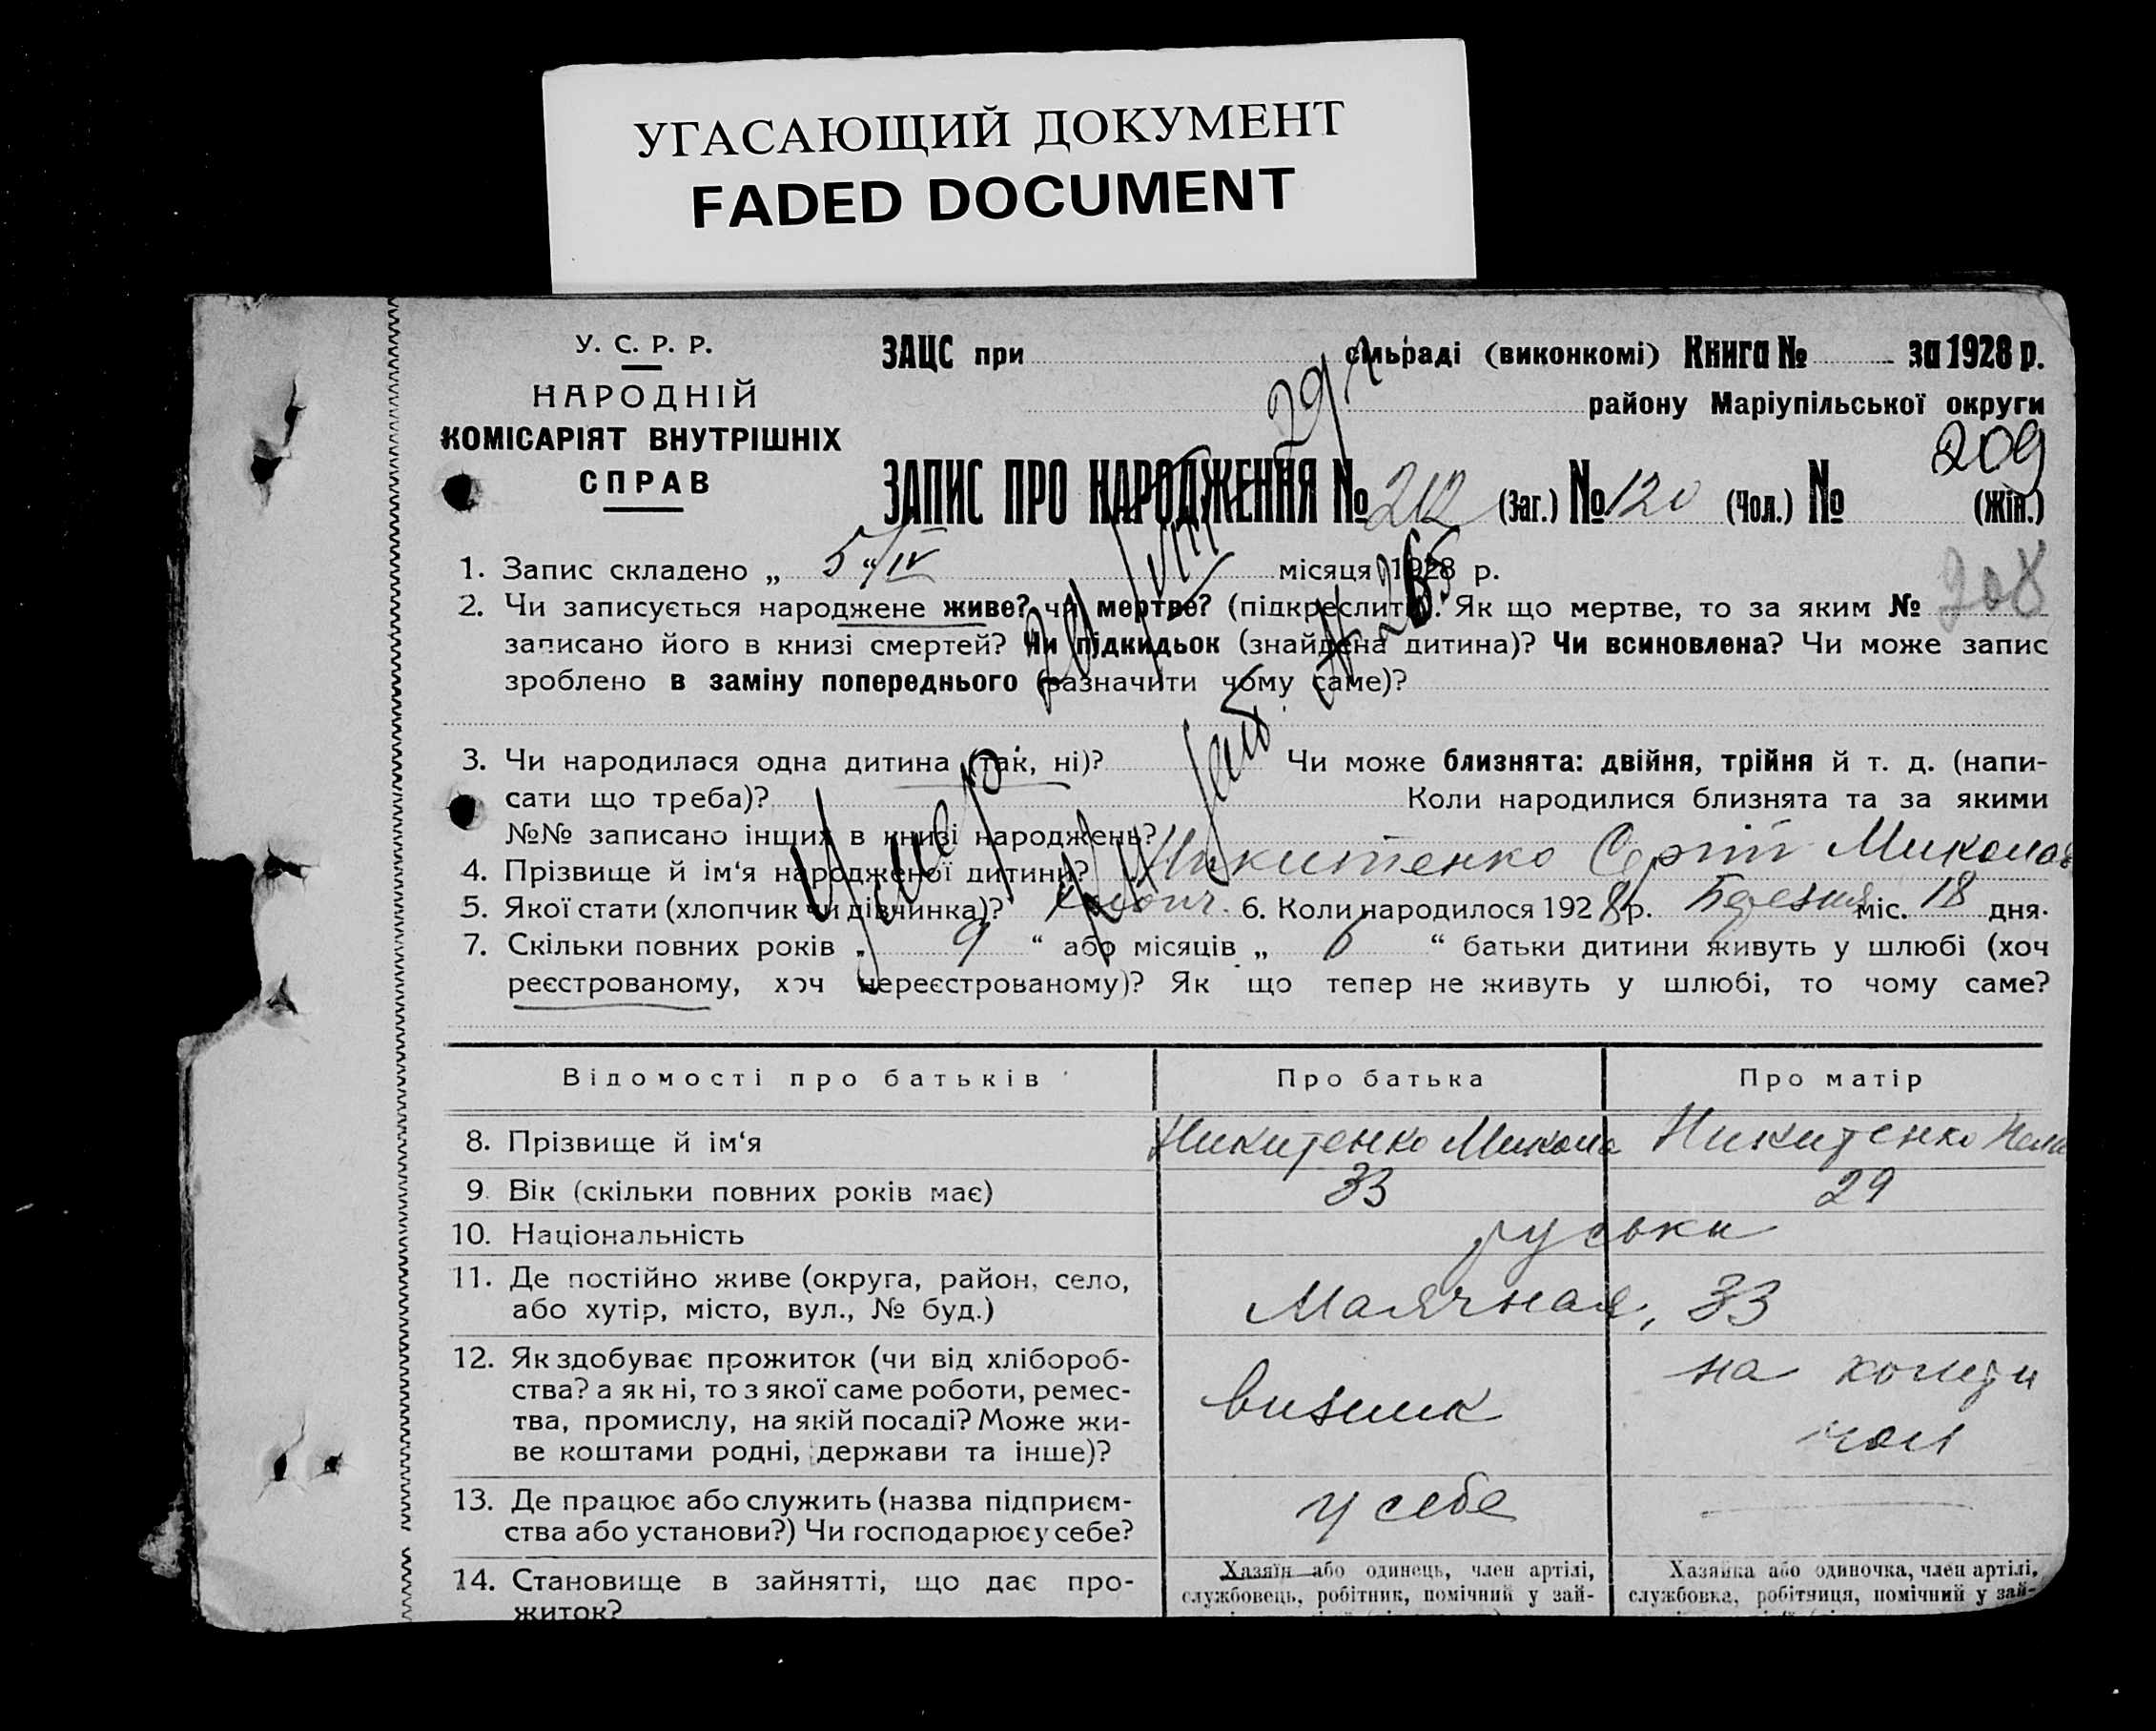 УГАСАЮЩИЙ ДОКУМЕНТ
FADED DOCUMENT
У. С. Р. Р.
НАРОДНІЙ
КОМІСАРІЯТ ВНУТРІШНІХ
СПРАВ
ЗАЦС при сільраді (виконкомі) Книга № за 1928 р.
району Маріупільської округи
209
ЗАПИС ПРО НАРОДЖЕННЯ № 212 (Заг.) № 120 (Чол.) № (Жін.)
1. Запис складено „ 5 “ IV місяця 1928 р.
208
2. Чи записується народжене живе? чи мертве? (підкреслити). Як що мертве, то за яким №
записано його в книзі смертей? Чи підкидьок (знайдена дитина)? Чи всиновлена? Чи може запис
зроблено в заміну попереднього (зазначити чому саме)?
3. Чи народилася одна дитина (так, ні)? Чи може близнята: двійня, трійня й т. д. (напи-
сати що треба)? Коли народилися близнята та за якими
№№ записано інших в книзі народжень?
4. Прізвище й ім‘я народженої дитини? Никитенко Сергій
5. Якої стати (хлопчик чи дівчинка)? хлопч. 6. Коли народилося 1928 р. Березня міс. 18 дня.
7. Скільки повних років „ 9 “ або місяців „ “ батьки дитини живуть у шлюбі (хоч
реєстрованому, хоч нереєстрованому)? Як що тепер не живуть у шлюбі, то чому саме?
Умер
Відомості про батьків Про батька Про матір
8. Прізвище й ім‘я Никитенко Микола Никитенко
9. Вік (скільки повних років має) 33 29
10. Національність руськи
11. Де постійно живе (округа, район, село,
або хутір, місто, вул., № буд.) Маячная, 33
12. Як здобуває прожиток (чи від хлібороб-
ства? а як ні, то з якої саме роботи, ремес-
тва, промислу, на якій посаді? Може жи-
ве коштами родні, держави та інше)? визник на
13. Де працює або служить (назва підприєм-
ства або установи?) Чи господарює у себе? у себе
14. Становище в зайнятті, що дає про-
житок?
Хазяїн або одинець, член артілі,
службовець, робітник, помічний у зай-
Хазяйка або одиночка, член артілі,
службовка, робітниця, помічний у зай-